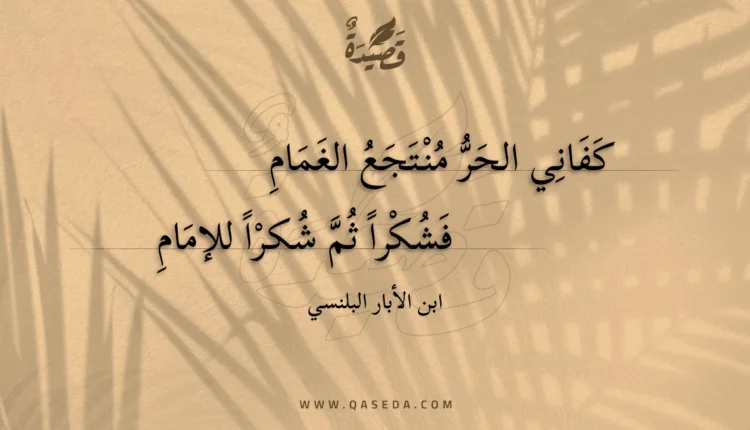 قَصِيْدَةٌ
كَفَانِي الحَرُّ مُنْتَجَعُ الغَمَامِ
فَشُكْراً ثُمَّ شُكرْاً للإمَامِ
ابن الأبار البلنسي
WWW.QASEDA.COM